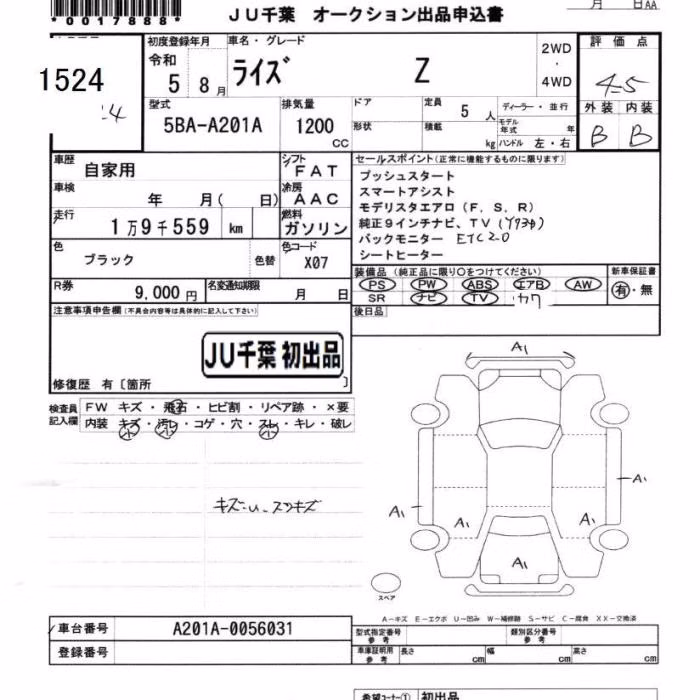 *0017888*
JU千葉 オークション出品申込書
月 日AA
1524
初度登録年月
令和
5 8月
車名・グレード
ライズ Z
2WD
・
4WD
評価点
4.5
外装 内装
B B
型式
5BA-A201A
排気量
1200
CC
ドア
形状
定員
5 人
積載
kg
ディーラー・並行
モデル年式 年
ハンドル 左・右
車歴
自家用
シフト
FAT
車検
年 月( 日)
冷房
AAC
走行
1万9千559 km
燃料
ガソリン
色
ブラック
色替
色コード
X07
R券
9,000円
名変通知期限
月 日
セールスポイント(正常に機能するものに限ります)
プッシュスタート
スマートアシスト
モデリスタエアロ(F、S、R)
純正9インチナビ、TV(Y934)
バックモニター ETC2.0
シートヒーター
装備品(純正品に限り○をつけてください)
PS PW ABS エアB AW
SR ナビ TV カワ
新車保証書
有・無
後日品
注意事項申告欄(不具合内容等は具体的に記入して下さい)
JU千葉 初出品
修復歴 有〔箇所 〕
検査員
記入欄
FW キズ・飛石・ヒビ割・リペア跡・×要
内装 キズ・汚レ・コゲ・穴・スレ・キレ・破レ
小 小 小
A1
A1
A1
A1
A1
A1
スペア
A-キズ E-エクボ U-凹み W-補修跡 S-サビ C-腐食 XX-交換済
車台番号
A201A-0056031
登録番号
型式指定番号
参考
類別区分番号
参考
車庫証明用
参考
長さ cm 幅 cm 高さ cm
希望コーナー① 初出品